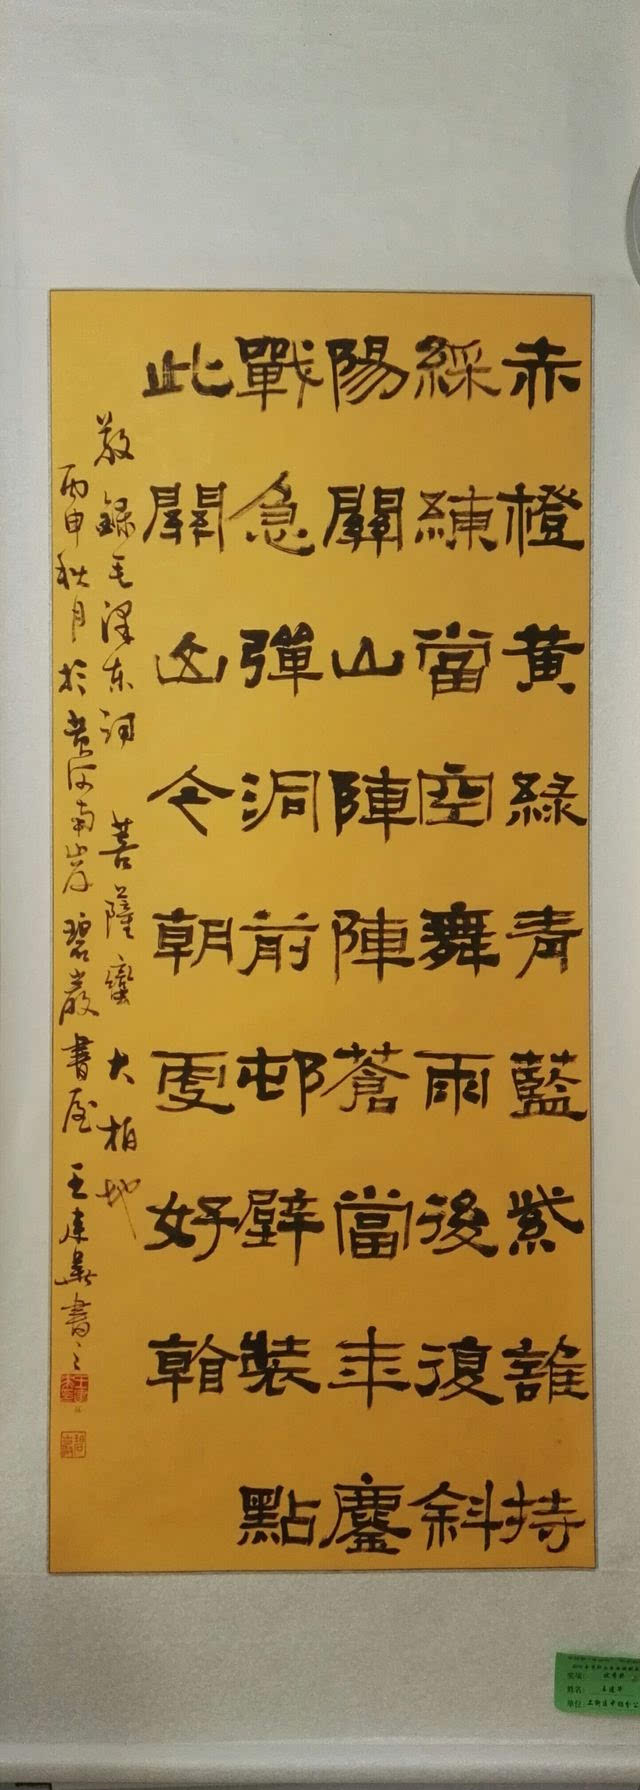 赤橙黄綠青藍紫誰持
綵練當空舞雨後復斜
陽關山陣陣蒼當年鏖
戰急彈洞前邨壁裝點
此關山今朝更好看
敬錄毛澤東詞 菩薩蠻 大柏地
丙申秋月於黄河南岸碧巖書屋王建華書之
奖项:
姓名: 王建华
单位: